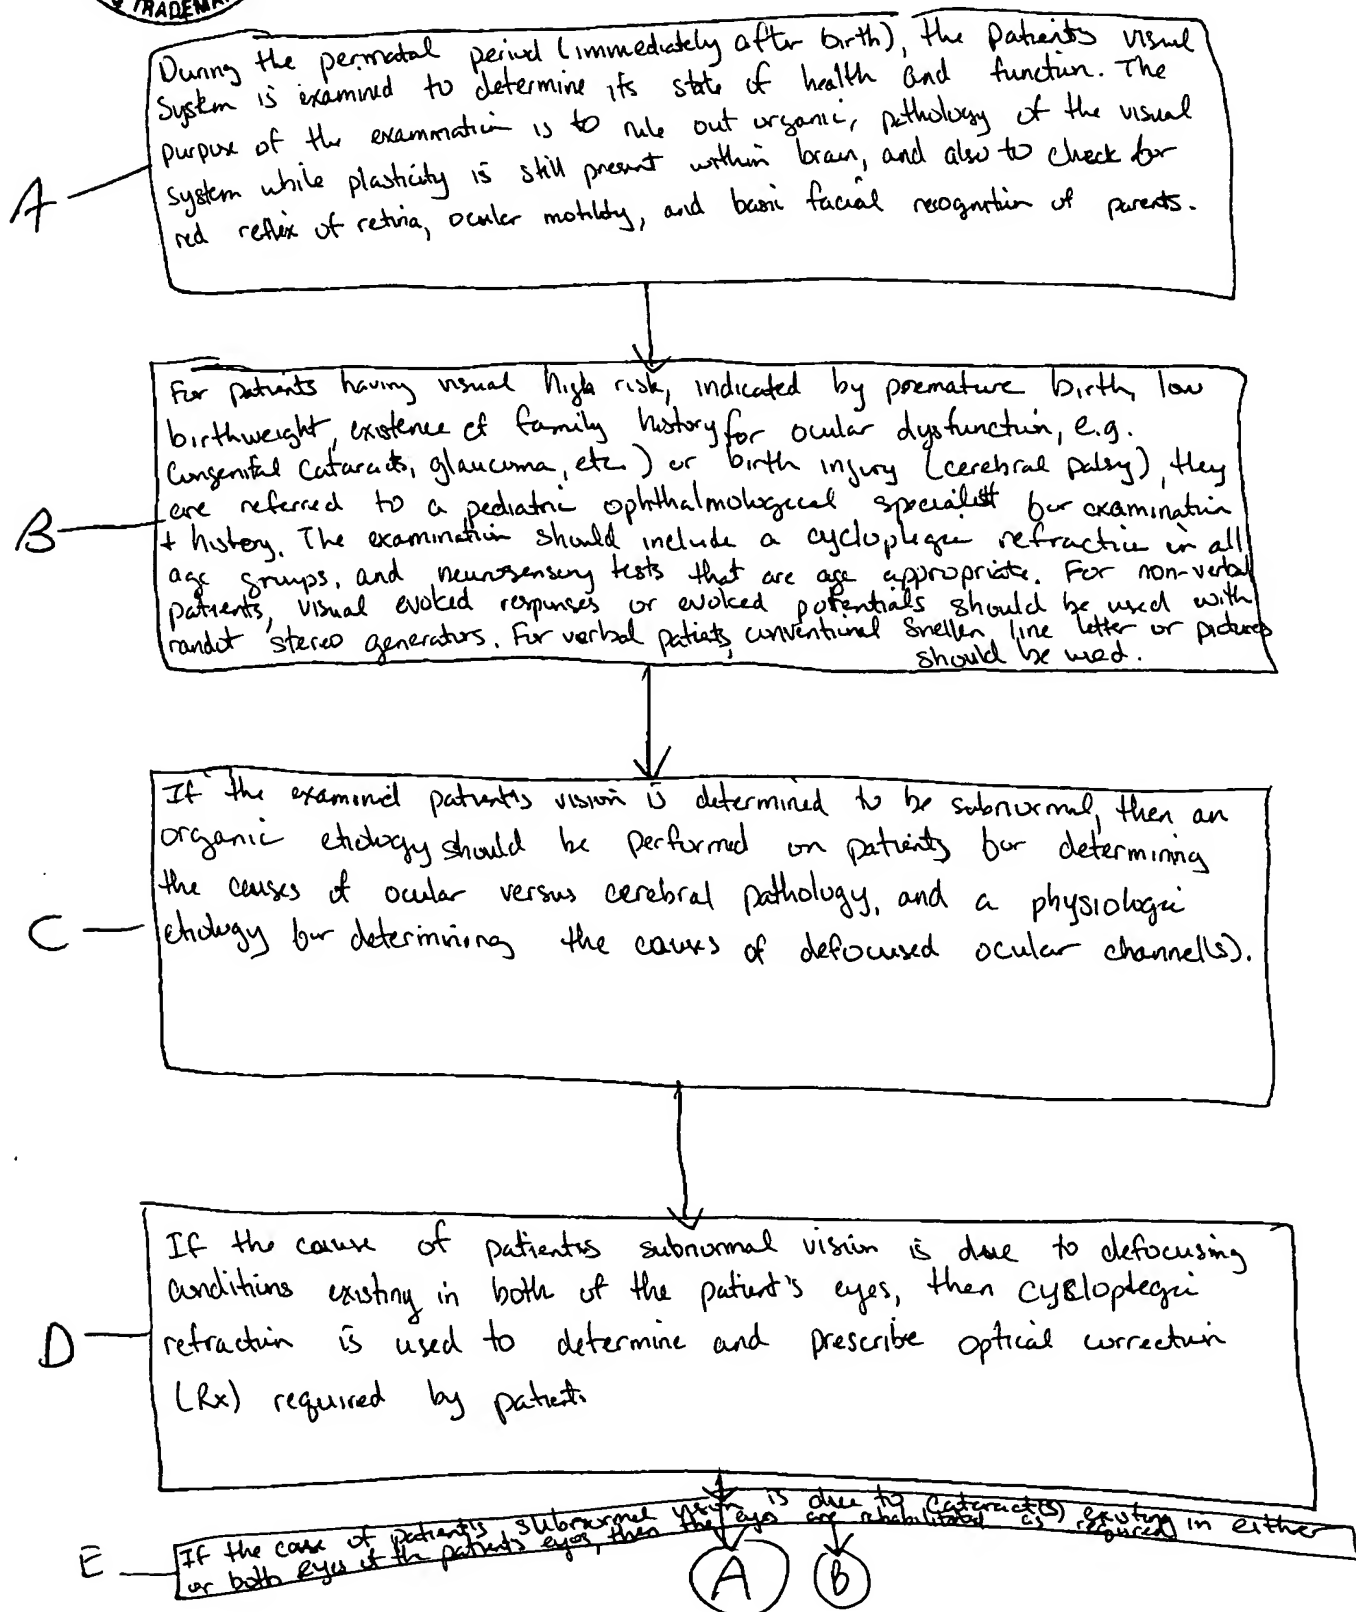 TRADEMA
During the perinatal period (immediately after birth), the patients visual
System is examined to determine its state of health and function. The
purpose of the examination is to rule out organic, pathology of the visual
system while plasticity is still present within brain, and also to check for
red reflex of retina, ocular motility, and basic facial recognition of parents.
A
For patients having visual high risk, indicated by premature birth, low
birthweight, existence of family history for ocular dysfunction, e.g.
Congenital cataracts, glaucoma, etc.) or birth injury (cerebral palsy), they
are referred to a pediatric ophthalmological specialist for examination
+ history. The examination should include a cycloplegic refraction in all
age groups, and neurosensory tests that are age appropriate. For non-verbal
patients, visual evoked responses or evoked potentials should be used with
randot stereo generators. For verbal patients, conventional Snellen line letter or pictures
should be used.
B
If the examined patient's vision is determined to be subnormal, then an
organic etiology should be performed on patients for determining
the causes of ocular versus cerebral pathology, and a physiologic
etiology for determining the causes of defocused ocular channel(s).
C
If the cause of patient's subnormal vision is due to defocusing
conditions existing in both of the patient's eyes, then cycloplegic
refraction is used to determine and prescribe optical correction
(Rx) required by patients
D
If the case of patient's subnormal vision is due to cataract(s) existing in either
or both eyes of the patient's eyes, then the eyes are rehabilitated as required
E
A B